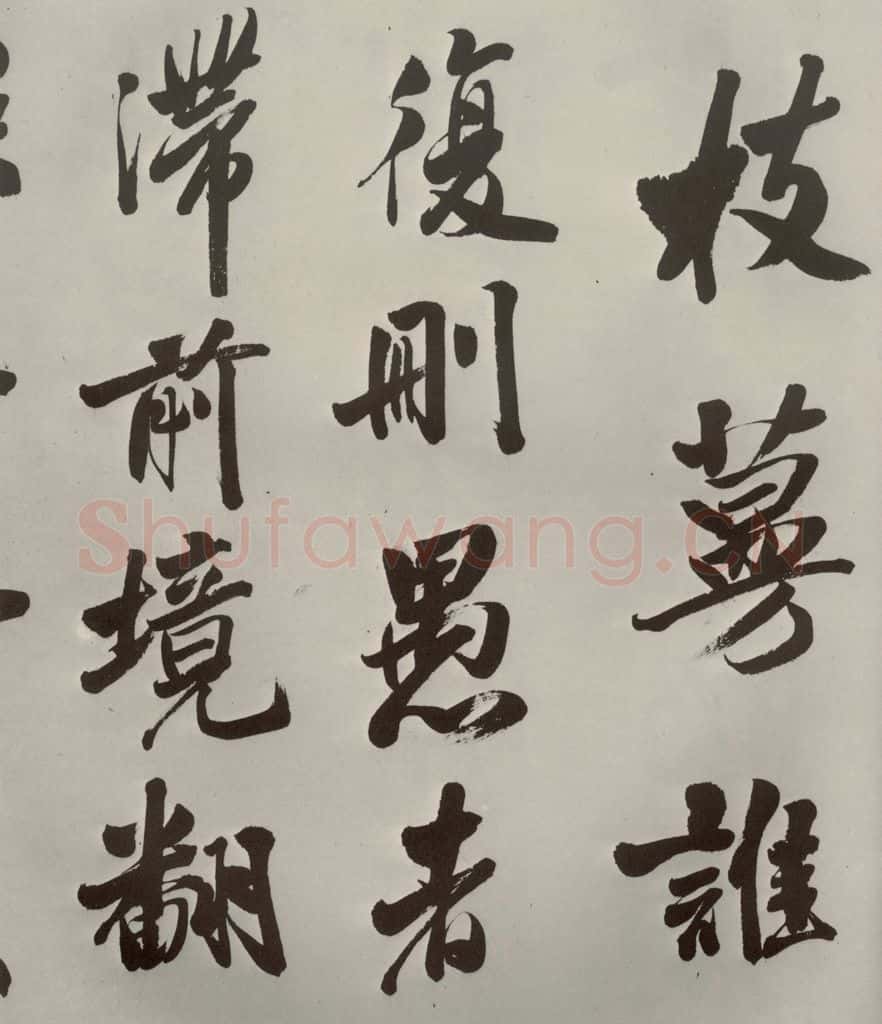 枝蔓誰
復刪愚者
滯前境翻
Shufawang.CN